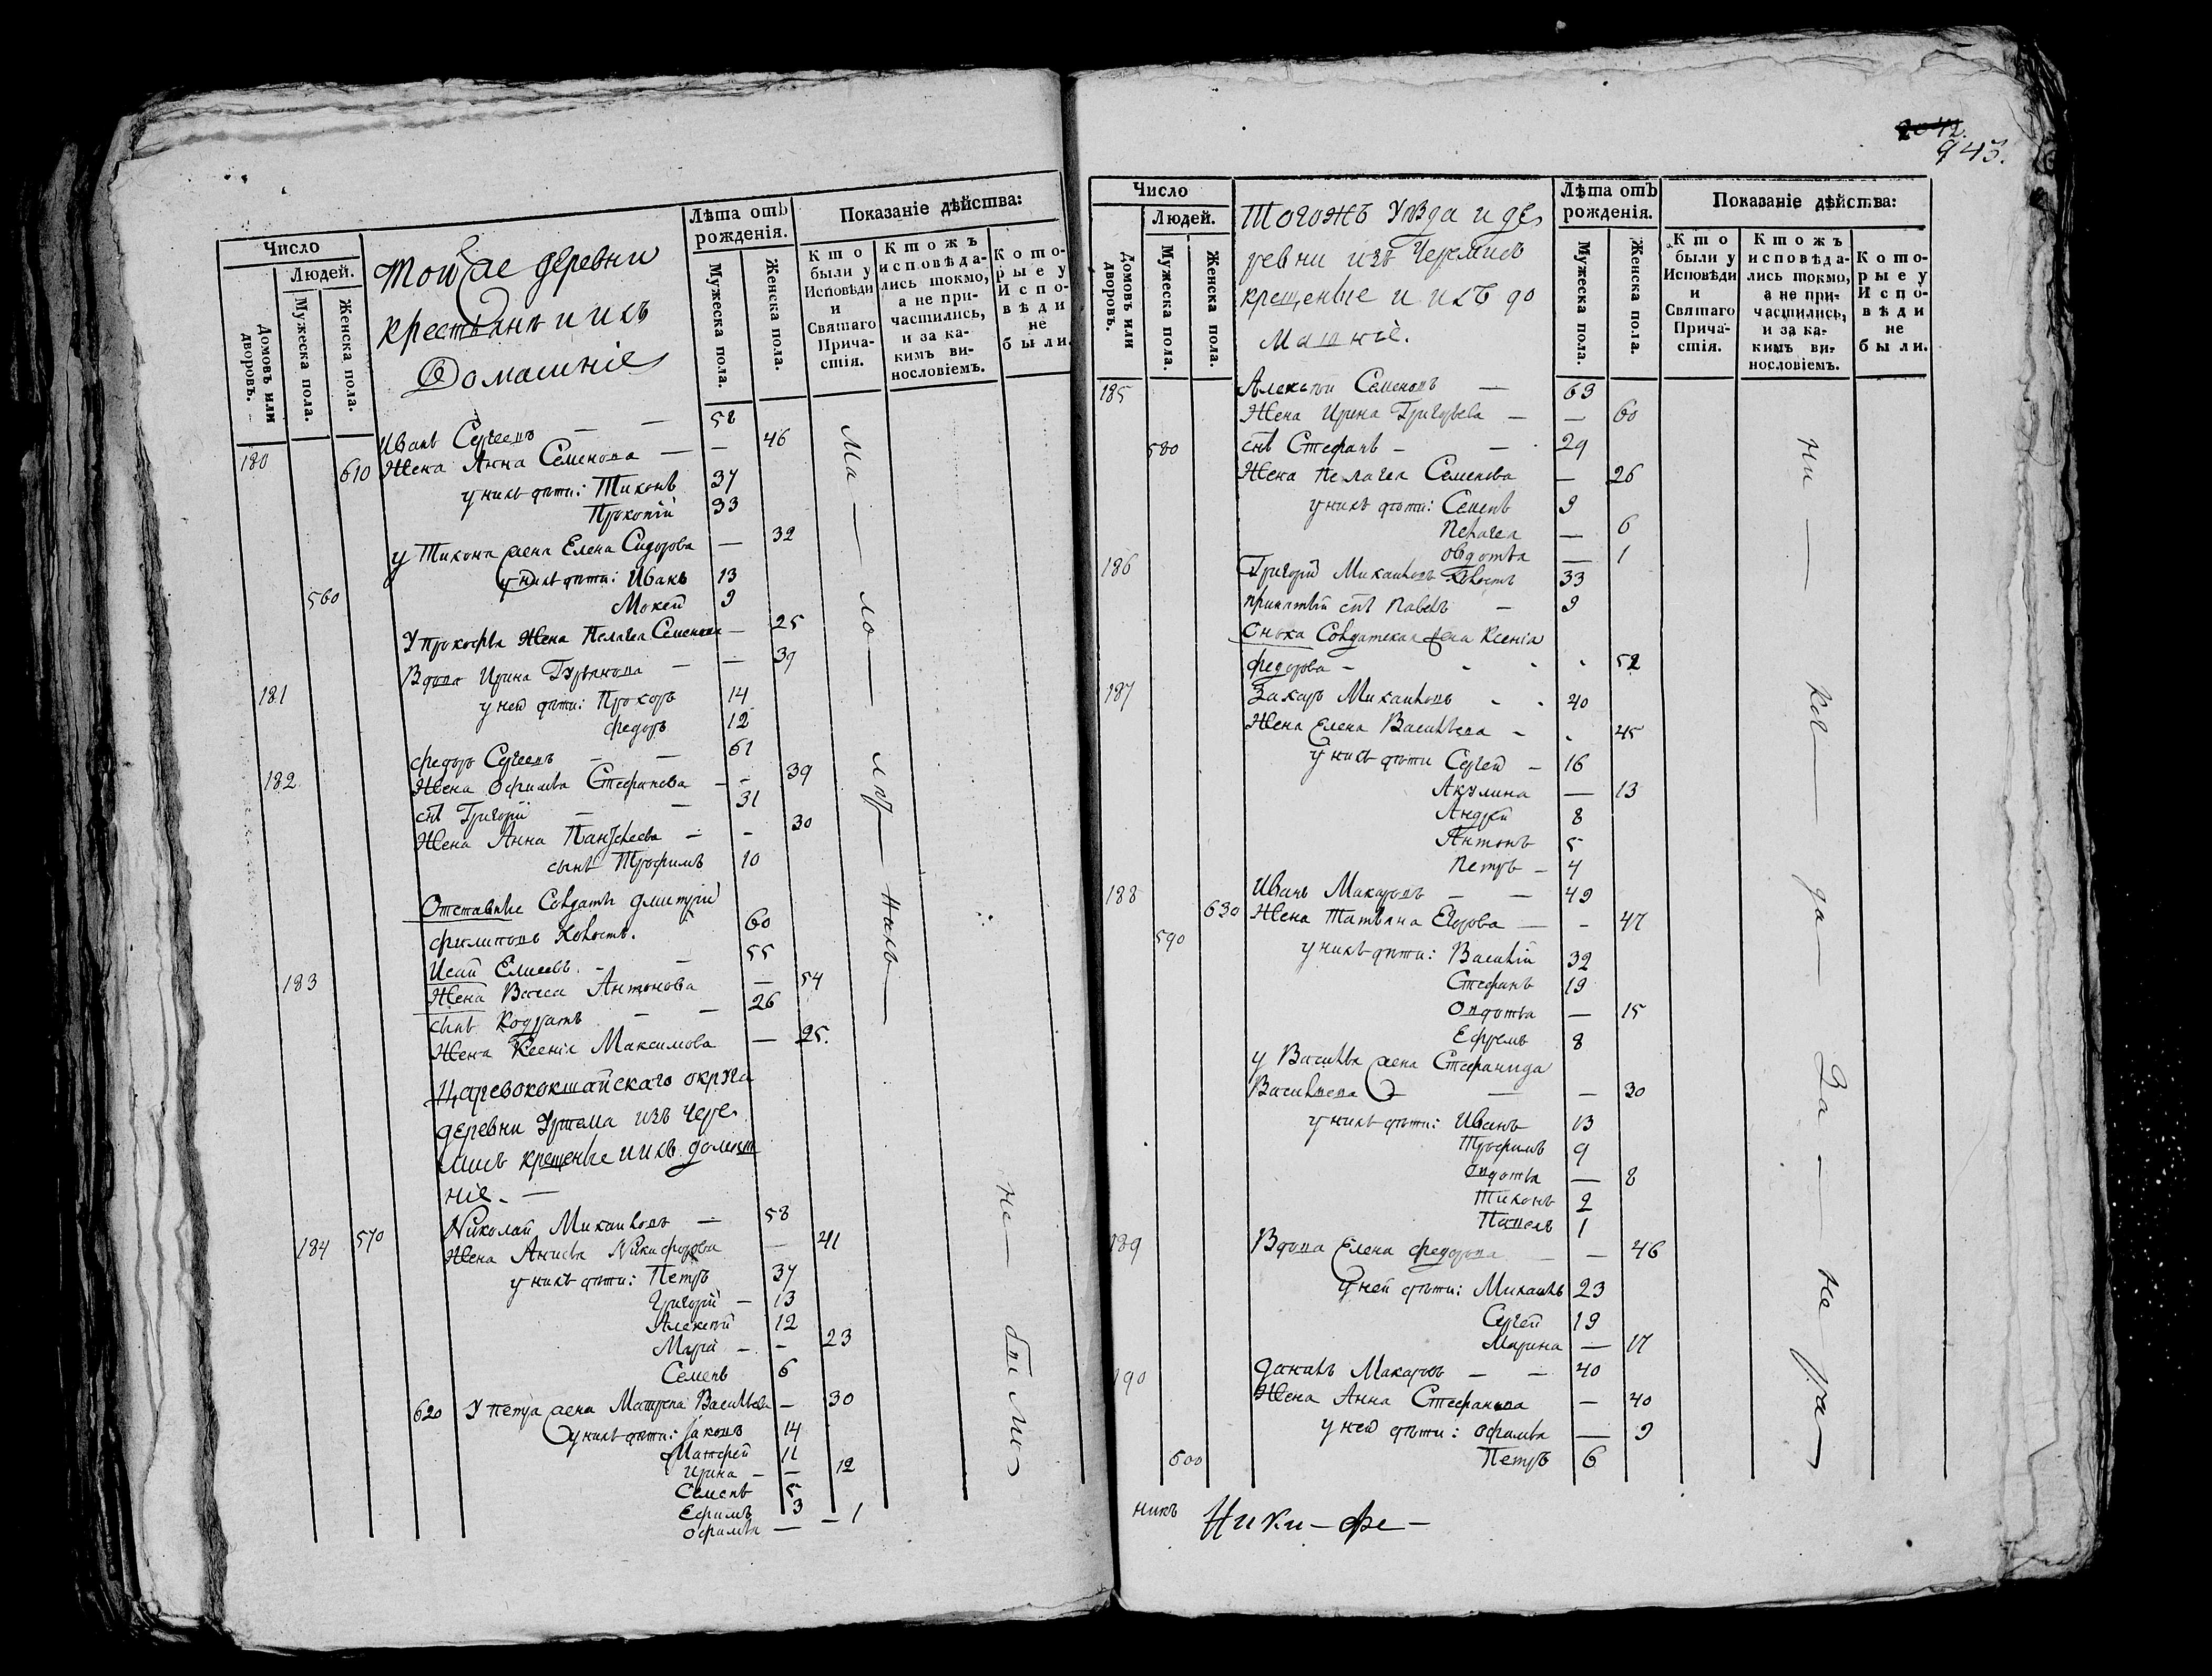 Число
Людей.
Домовъ или дворовъ.
Мужеска пола.
Женска пола.
Тойже деревни
крестьянъ и ихъ
Домашніе
Лѣта отъ рожденія.
Мужеска пола.
Женска пола.
Показаніе дѣйства:
Кто были у Исповѣди и Святаго Причастія.
Ктожъ исповѣдались токмо, а не причастились, и за какимъ винословіемъ.
Которые у Исповѣди не были.
180 Иванъ Сергеевъ — — 58
610 Жена Анна Семенова — — 46
у нихъ дѣти: Тихонъ 37
Прокопій 33
у Тихона жена Елена Сидорова — 32
у нихъ дѣти: Иванъ 13
560 Мокей 9
У Прокофья Жена Пелагея Семенова — 25
181 Вдова Ирина Гурьянова — — 39
у ней дѣти: Прохоръ 14
Федоръ 12
182 Федоръ Сергеевъ — — 61
Жена Офимья Стефанова — - 39
снъ Григорій — — 31
Жена Анна Пантелеева — - 30
сынъ Трофимъ 10
Отставные Солдатъ Дмитрій
Филиповъ Холостъ. 60
183 Исай Елисеевъ. - — 55
Жена Васса Антонова — 54
сынъ Кодратъ — — 26
Жена Ксенія Максимова — 25.
Царевококшайскаго округа
деревни Уртема изъ Чере-
мисъ крещеные и ихъ домаш
ніе. —
184 570 Николай Михайловъ — 58
Жена Анисья Никифорова — 41
у нихъ дѣти: Петръ 37
Григорій — 13
Алексѣй 12
Марій — - 23
Семенъ 6
620 У Петра жена Матрена Васильева — 30
у нихъ дѣти: Iаковъ 14
Матфей 11
Ирина — — 12
Семенъ 5
Ефимъ 3
Офимья — — 1
ма — ло — лѣт — нихъ —
не — были
2042.
943.
Число
Людей.
Домовъ или дворовъ.
Мужеска пола.
Женска пола.
Тогожъ Уѣзда и де-
ревни изъ Черемисъ
крещеные и ихъ до
машніе.
Лѣта отъ рожденія.
Мужеска пола.
Женска пола.
Показаніе дѣйства:
Кто были у Исповѣди и Святаго Причастія.
Ктожъ исповѣдались токмо, а не причастились, и за какимъ винословіемъ.
Которые у Исповѣди не были.
185 Алексѣй Семеновъ — 63
Жена Ирина Григорьева — — 60
580 снъ Стефанъ - — 29
Жена Пелагея Семенова — 26
у нихъ дѣти: Семенъ 9
Пелагея — 6
Овдотья — 1
186 Григорій Михайловъ Холостъ 33
принятый снъ Павелъ — 9
Сноха Солдатская жена Ксенія
Федорова - - - - 52
187 Захаръ Михайловъ - - 40
Жена Елена Васильева - - 45
у нихъ дѣти Сергей — 16
Акулина — 13
Андрей 8
Антонъ 5
Петръ — 4
188 Иванъ Макаровъ — — 49
630 Жена Татьяна Егорова — - 47
590 у нихъ дѣти: Василій 32
Стефанъ 19
Овдотья — 15
Ефремъ 8
у Василья жена Стефанида
Васильева — — — 30
у нихъ дѣти: Иванъ 13
Трофимъ 9
Овдотья — 8
Тихонъ 2
Павелъ 1
189 Вдова Елена Федорова — — 46
у ней дѣти: Михаилъ 23
Сергей 19
Марина — 17
190 Данилъ Макаровъ — — 40
Жена Анна Стефанова — 40
у ней дѣти: Офимья — 9
600 Петръ 6
ни — ко — да — За — не ра —
никъ Ники — фе —